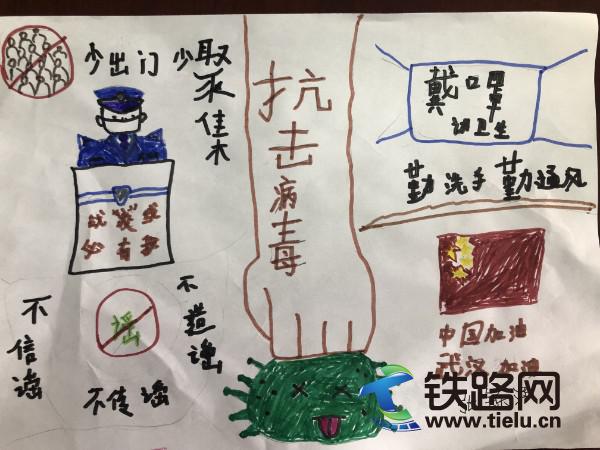 少出门 少聚集
抗击病毒
戴口罩
讲卫生
勤洗手 勤通风
必有我
不信谣
谣
不造谣
不传谣
中国加油
武汉加油
铁路网
www.tielu.cn